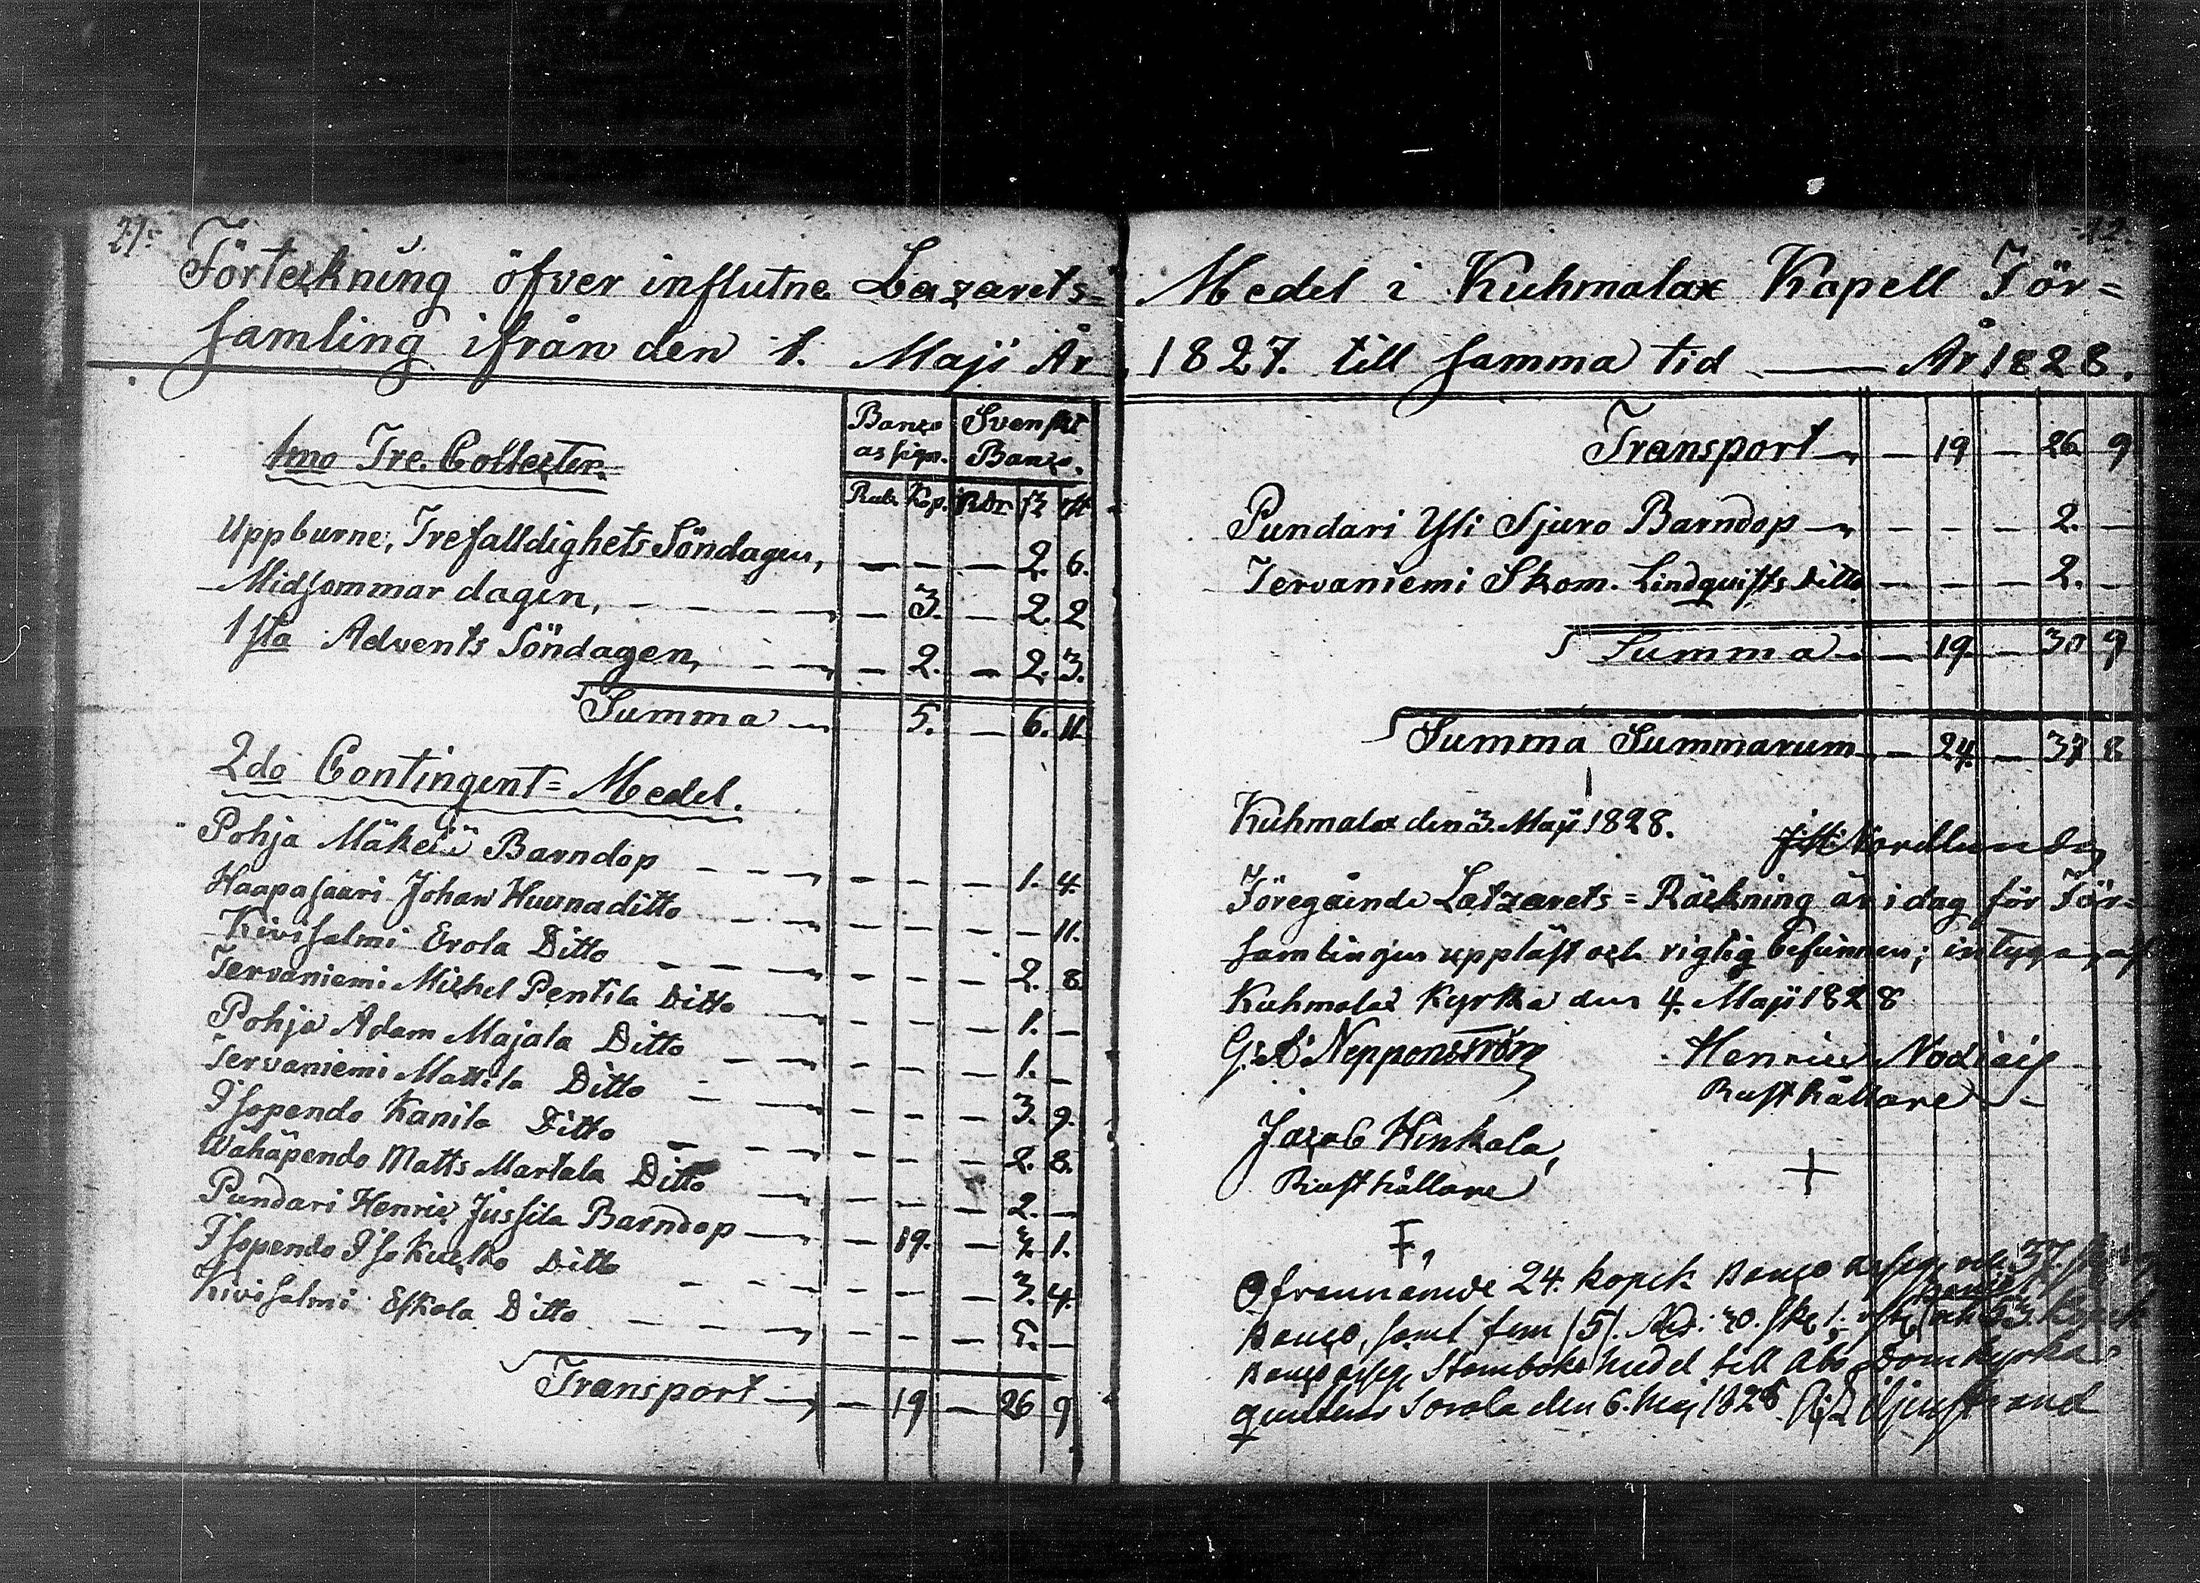 27.
Förteckning öfver influtne Lazarets=
samling ifrån den 1. Maji År
Banco assign. Svenskt Banco.
1mo Tre Collecter.
Rub. Kop. Rdr ß rst
Uppburne, Trefalldighets Söndagen, — — — 2. 6.
Midsommar dagen, — 3. — 2. 2
1sta Advents Söndagen, — 2. — 2. 3.
Summa 5. — 6. 11
2do Contingent=Medel.
Pohja Mäkelä Barndop — — — 1. 4.
Haapasaari Johan Huuna ditto — — — — 11.
Kivisalmi Erola Ditto — — — 2. 8.
Tervaniemi Michel Pentila Ditto — — — 1. —
Pohja Adam Majala Ditto — — — 1. —
Tervaniemi Mattila Ditto — — — 3. 9.
Isopendo Kanila Ditto — — — 2. 8.
Wähäpendo Matts Martala Ditto — — — 2. —
Pundari Henric Jussila Barndop — 19. — 1.
Isopendo Iso Ditto — — — 3. 4.
Kivisalmi Eskola Ditto — — — 5. —
Transport — 19 — 26 9
12.
Medel i Kuhmalax Kapell För=
1827. till samma tid — År 1828.
Transport — 19 — 26. 9
Pundari Yli Sjuro Barndop — — — 2. —
Tervaniemi Skom. Lindquists Ditto — — — 2. —
Summa — 19. — 30 9
Summa Summarum — 24. — 37 8
Kuhmalax den 3. Maji 1828.
Nordlund
Föregående Latzarets=Räckning är i dag för För=
samlingen uppläst och rigtig befunnen; intyga, af
Kuhmalax Kyrka den 4. Maji 1828
G. A. Nepponström Henric
Rusthållare
Jacob Hinkala,
Rusthållare
Ofvannämde 24. kopek Banco assig. och 37.
Banco, samt fem /5/. Rdr: 30. sk. och 53. kopek
Banco assig. Stamboks medel till Åbo Domkyrka
den 6. Maj 1828.